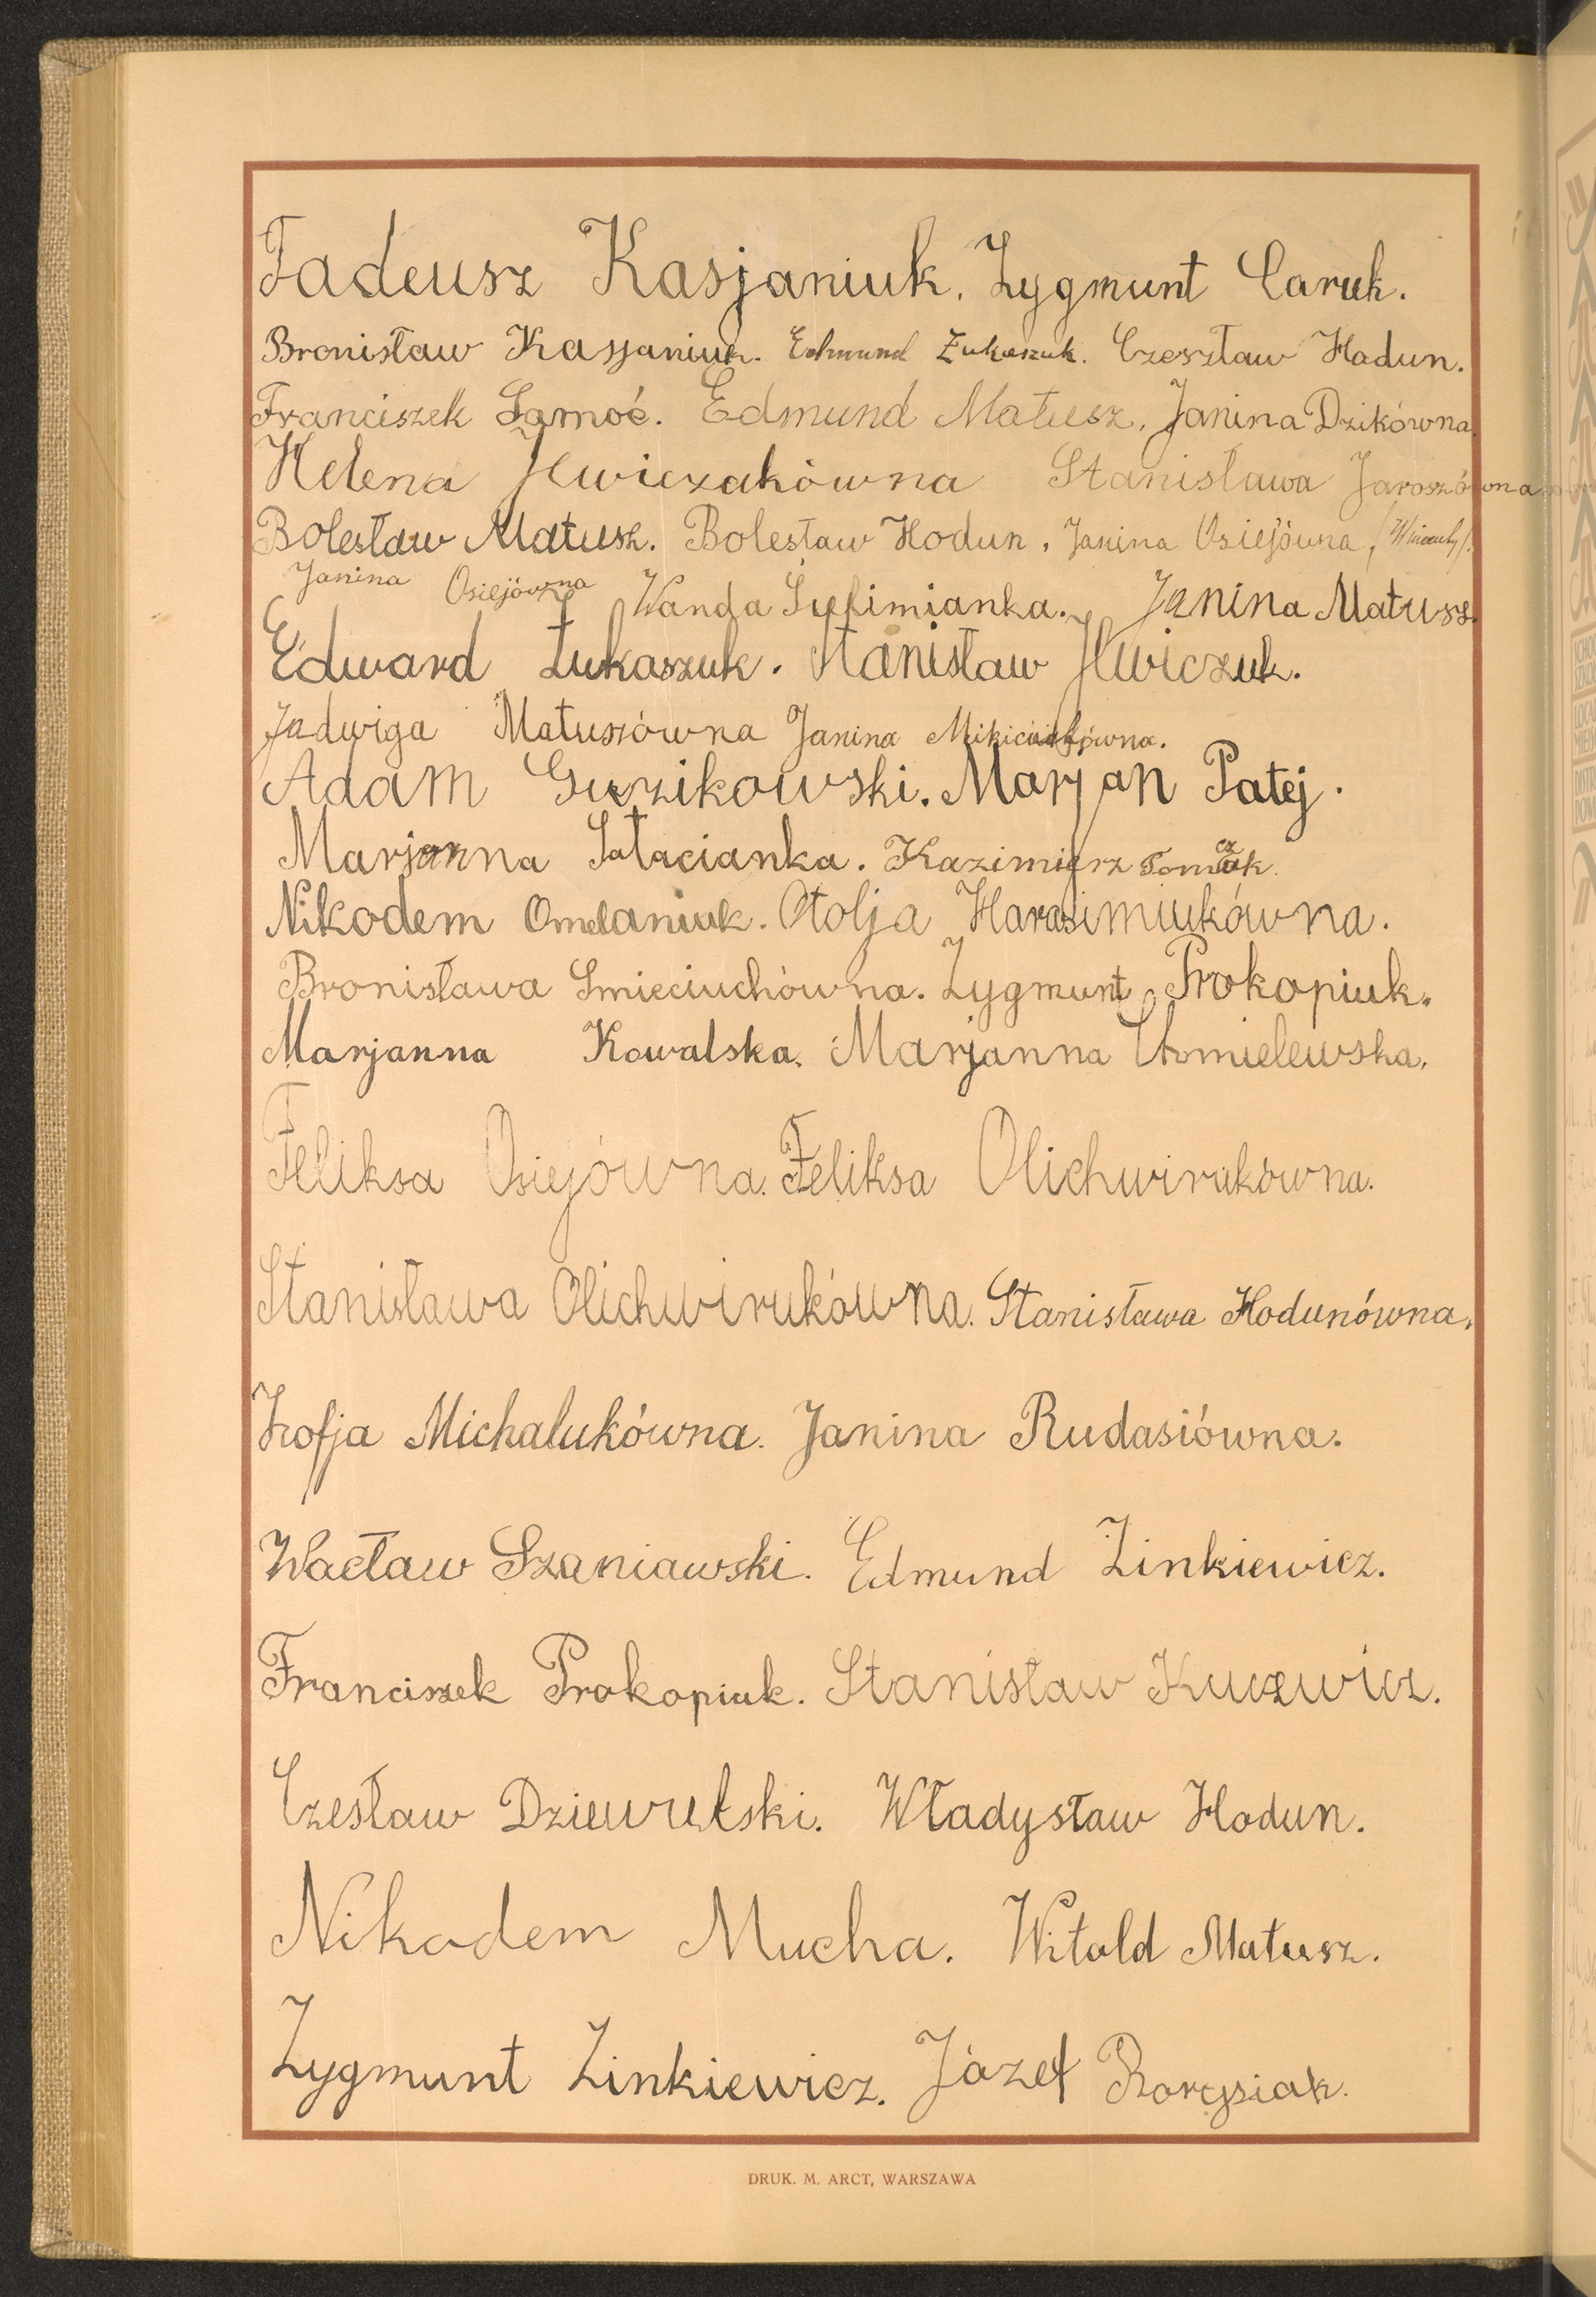 Tadeusz Kasjaniuk. Zygmunt Caruk.
Bronisław Kasjaniuk. Edmund Łukaszuk. Czesztaw Hadun.
Franciszek Zamoć. Edmund Matusz. Janina Dzikówna.
Helena Iwiczakówna Stanisława Jaroszówna
Bolesław Matusz. Bolestaw Hodun. Janina Osiejówna,
Janina Osiejówna Wanda Janina Matusz.
Edward Łukaszuk. Stanisław Iwiczuk.
Jadwiga Matuszówna Janina
Adam Guzikowski. Marjan Patej.
Marjanna Sałacianka. Kazimierz Tomczak.
Nikodem Omelaniuk. Otolja Harasimiukówna.
Bronisława Smieciuchówna. Zygmunt Prokopiuk.
Marjanna Kowalska. Marjanna Chomielewska.
Feliksa Osiejówna. Feliksa Olichwirukówna.
Stanisława Olichwirukówna. Stanisława Hodunówna.
Zofja Michalukówna. Janina Rudasiówna.
Wacław Szaniawski. Edmund Zinkiewicz.
Franciszek Prokopiuk. Stanisław Kucewicz.
Czesław Dziewulski. Władysław Hodun.
Nikodem Mucha. Witold Matusz.
Zygmunt Zinkiewicz. Józef Borysiak.
DRUK. M. ARCT, WARSZAWA